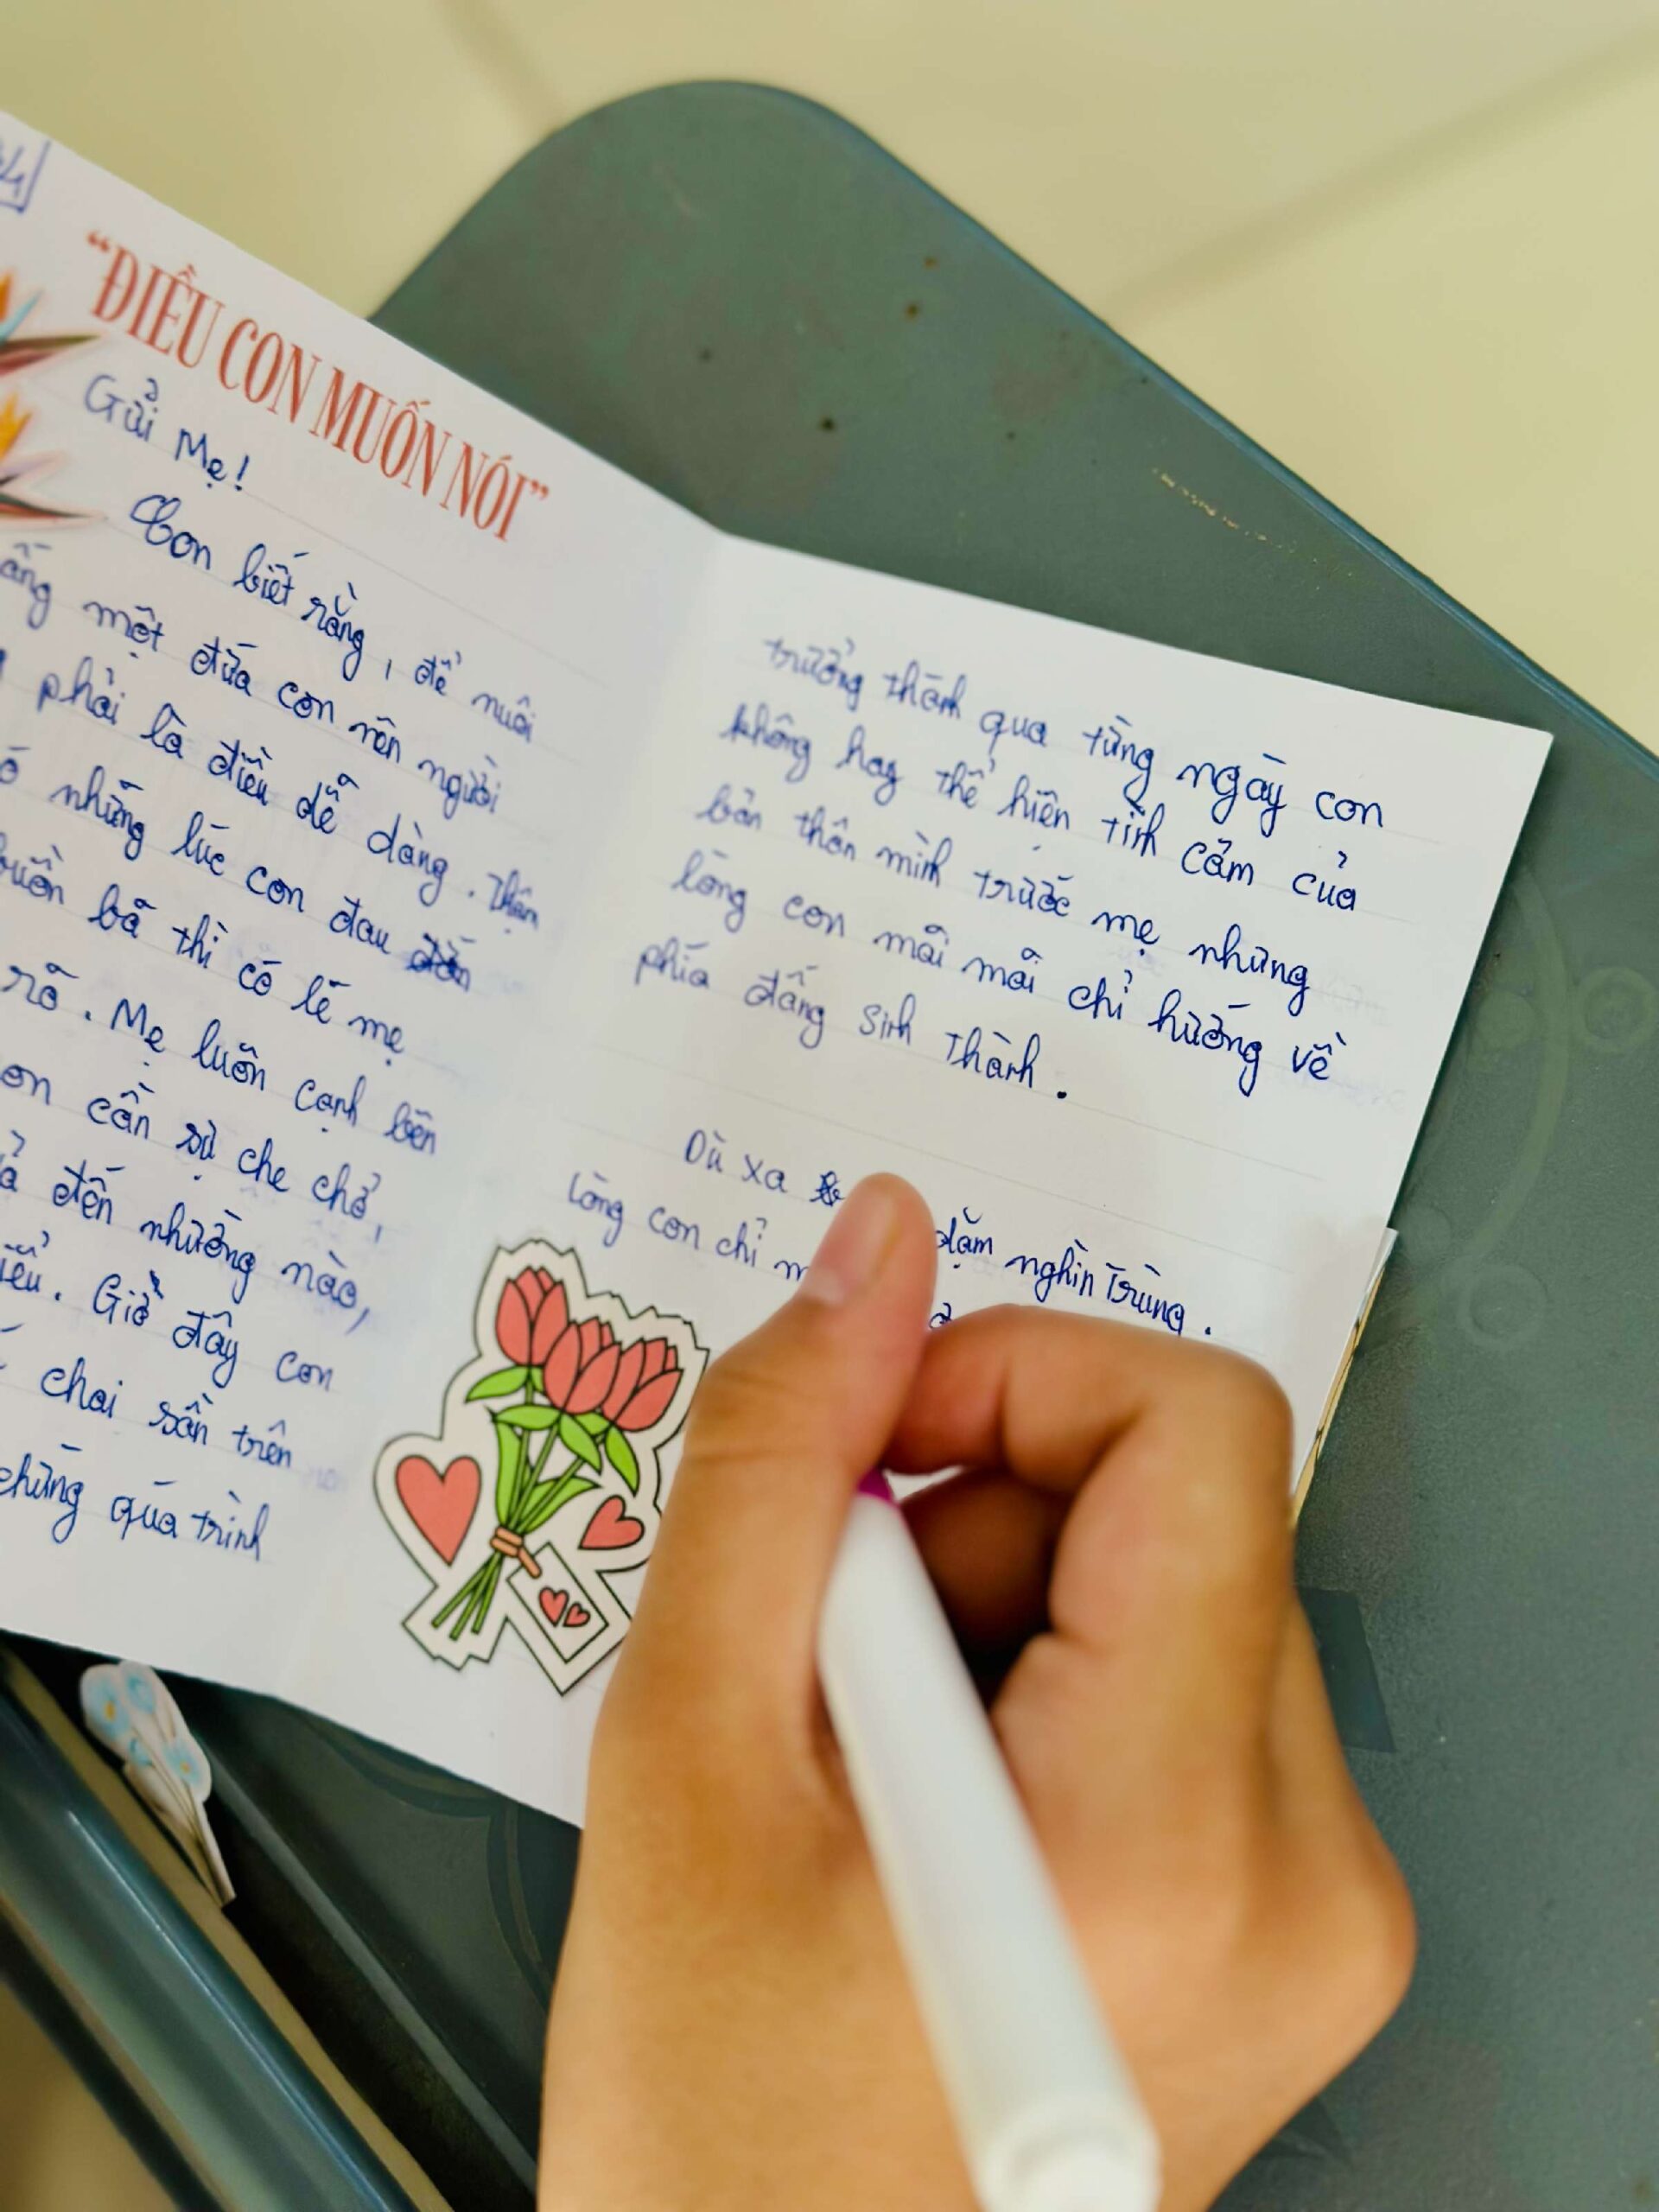 "ĐIỀU CON MUỐN NÓI"
Gửi Mẹ!
Con biết rằng, để nuôi
một đứa con nên người
phải là điều dễ dàng. Thậm
những lúc con đau đớn
buồn bã thì có lẽ mẹ
rõ. Mẹ luôn cạnh bên
cần sự che chở,
đến nhường nào,
Giờ đây con
chai sần trên
chừng qúa trình
trưởng thành qua từng ngày con
không hay thể hiện tình cảm của
bản thân mình trước mẹ nhưng
lòng con mãi mãi chỉ hướng về
phía đấng sinh thành.
Dù xa dặm nghìn trùng.
Lòng con chỉ